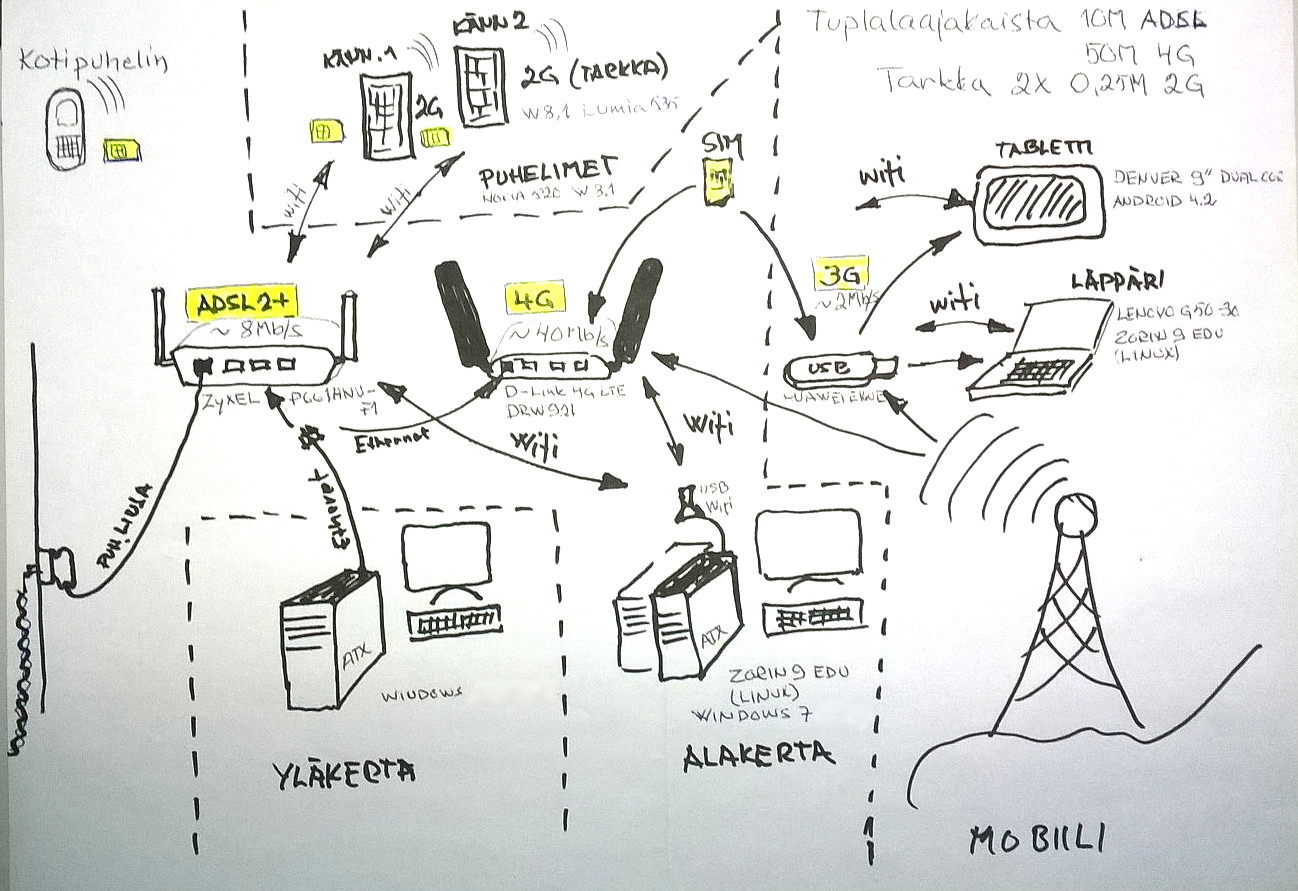 Tuplalaajakaista 10M ADSL
50M 4G
Tarkka 2X 0,25M 2G
Kotipuhelin
KÄNN.1
2G
KÄNN 2
2G (TARKKA)
W8,1 Lumia 535
PUHELIMET
NOKIA 920 W 8.1
wifi
wifi
SIM
TABLETTI
DENVER 9" DUAL
ANDROID 4.2
wifi
3G
~2Mb/s
USB
HUAWEI
LÄPPÄRI
LENOVO G50-30
ZORIN 9 EDU
(LINUX)
wifi
ADSL2+
~8Mb/s
ZyXEL
4G
~40Mb/s
D-Link 4G LTE
DRW 921
Ethernet
Wifi
Wifi
PUH.LINJA
Ethernet
ATX
WINDOWS
YLÄKERTA
USB
Wifi
ATX
ZORIN 9 EDU
(LINUX)
WINDOWS 7
ALAKERTA
MOBIILI